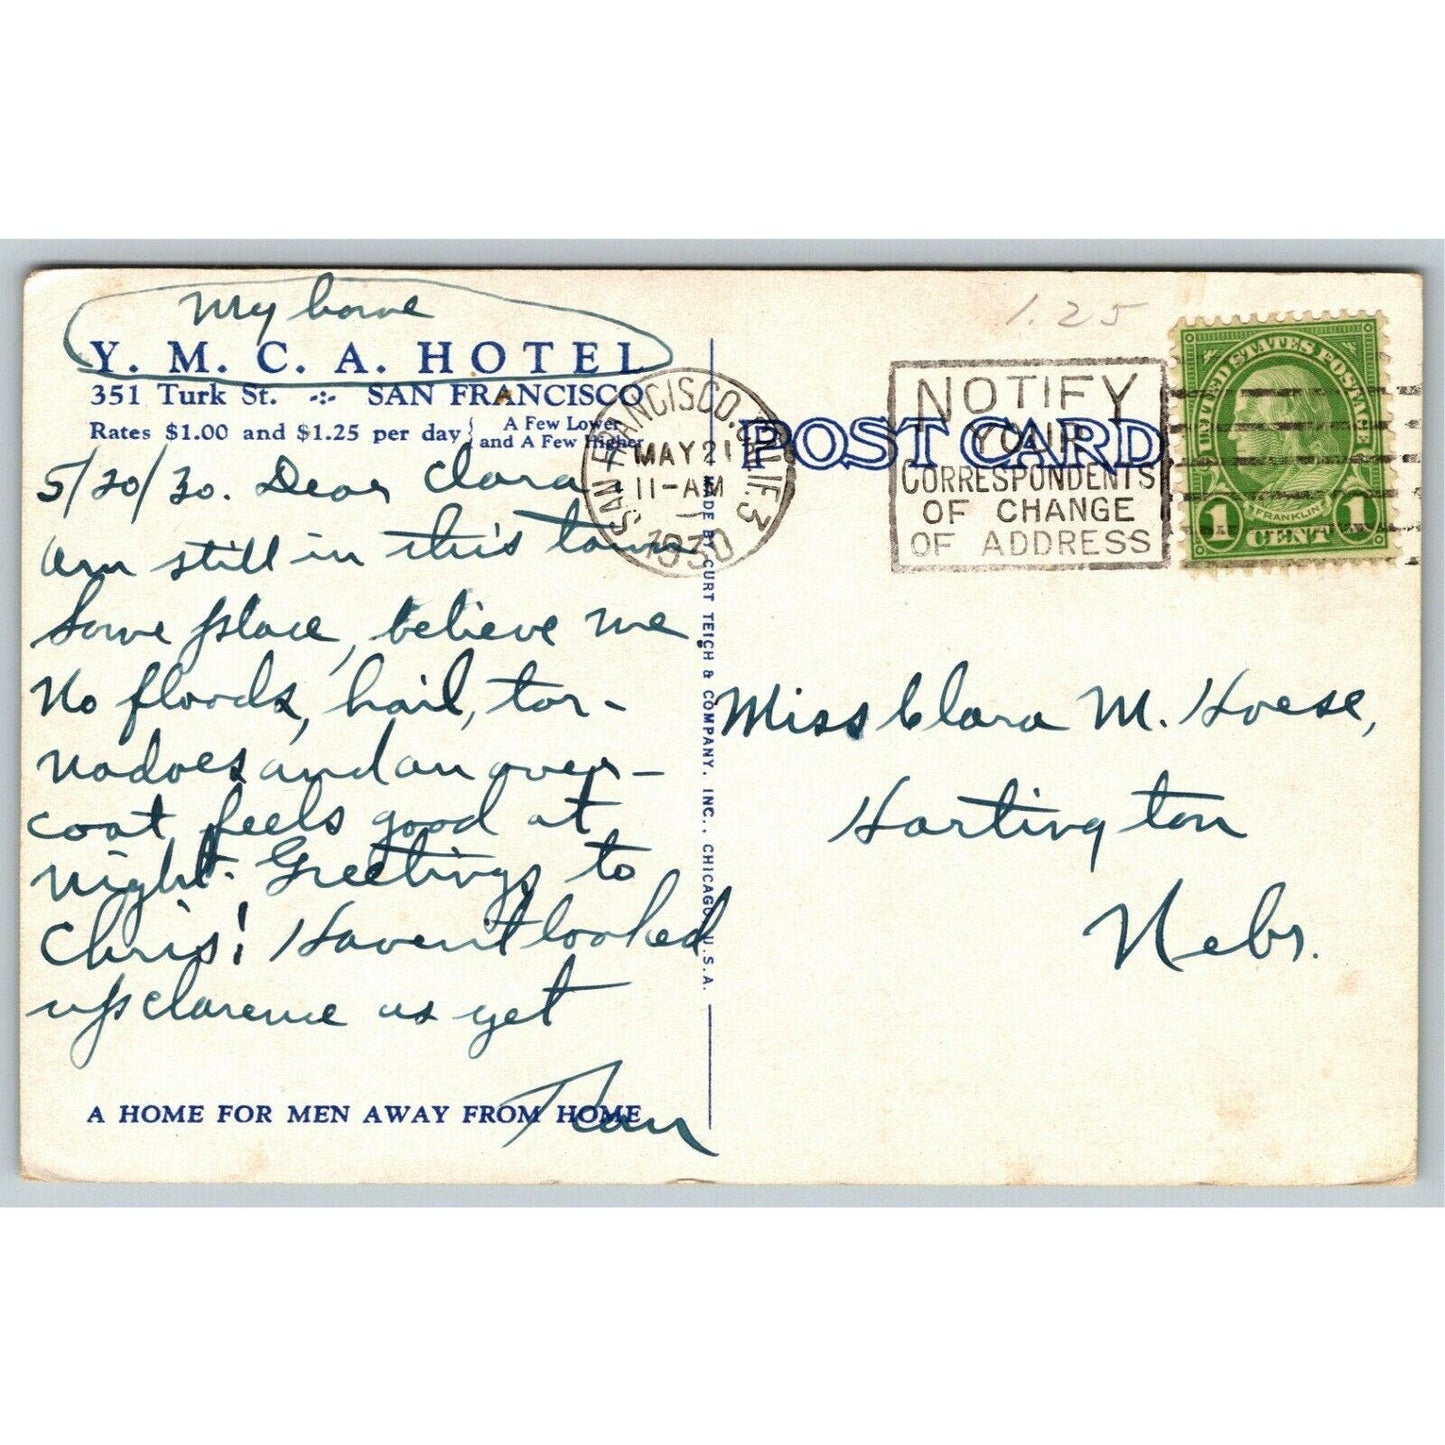 My home
Y. M. C. A. HOTEL
351 Turk St. -:- SAN FRANCISCO
Rates $1.00 and $1.25 per day { A Few Lower
and A Few Higher
5/20/30. Dear Clara
Am still in this town
Some place, believe me.
No floods, hail, tor-
nadoes and an over-
coat feels good at
night. Greetings to
Chris! Haven't looked
up Clarence as yet
A HOME FOR MEN AWAY FROM HOME
SAN FRANCISCO, CALIF. 3
MAY 21
11-AM
1930
MADE BY CURT TEICH & COMPANY, INC., CHICAGO, U.S.A.
1.25
POST CARD
NOTIFY
YOUR
CORRESPONDENTS
OF CHANGE
OF ADDRESS
UNITED STATES POSTAGE
FRANKLIN
1 CENT 1
Miss Clara M. Hoese,
Hartington
Nebr.